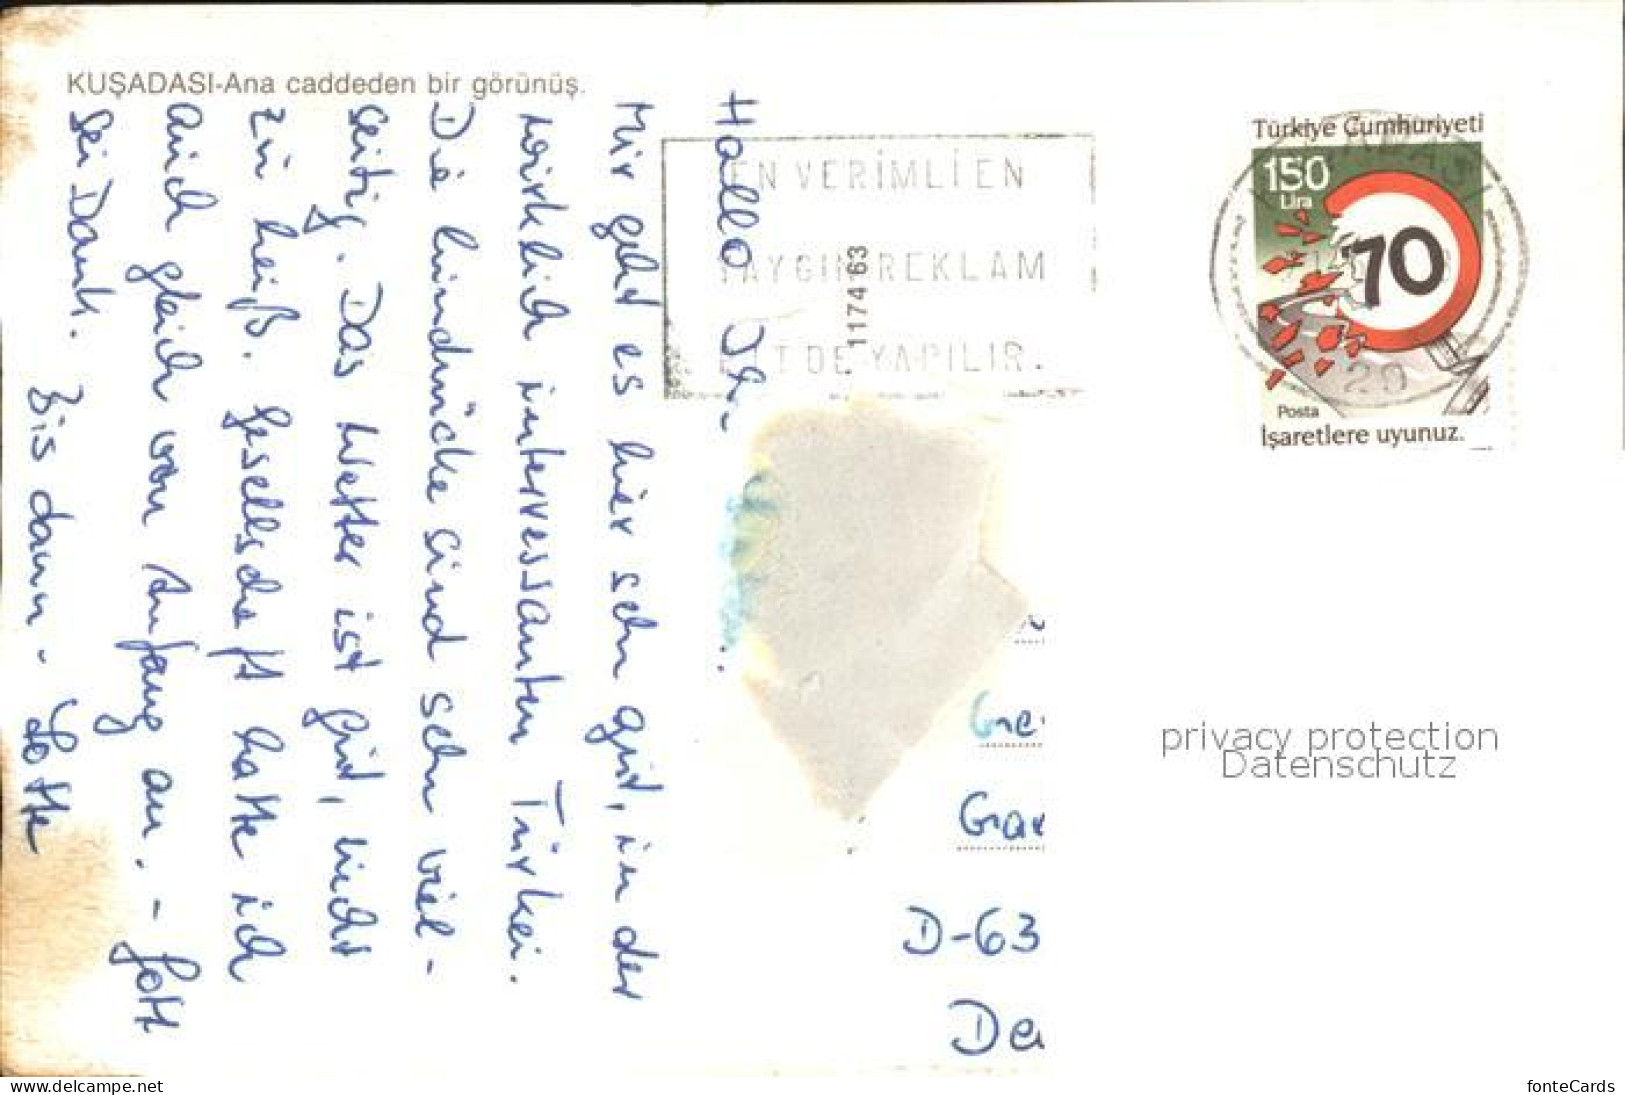 KUŞADASI-Ana caddeden bir görünüş.
Hallo
Mir geht es hier sehr gut, in der
wirklich interressanten Türkei.
Die Eindrücke sind sehr viel-
seitig. Das Wetter ist gut, nicht
zu heiß. Gesellschaft hatte ich
auch gleich von Anfang an. - Gott
sei Dank.
Bis dann - Lotte
EN VERİMLİ EN
YAYGIN REKLAM
DE YAPILIR.
1174 63
Türkiye Cumhuriyeti
150
Lira
70
20
Posta
İşaretlere uyunuz.
Gre
Gar
D-63
De
privacy protection
Datenschutz
www.delcampe.net
fonteCards